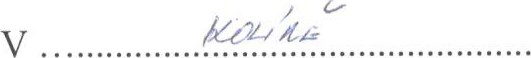 V ........KOLÍNĚ........................